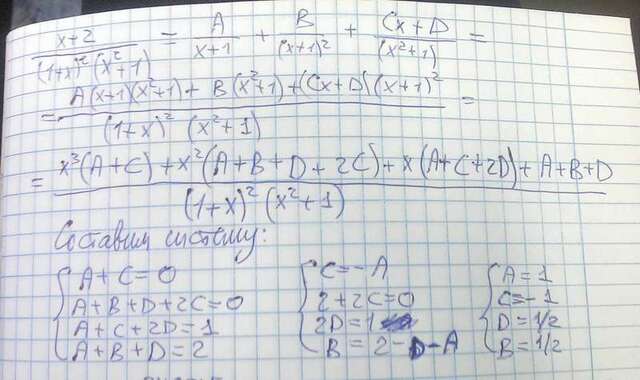 x+2 / (1+x)²(x²+1) = A / x+1 + B / (x+1)² + Cx+D / (x²+1) =
= A(x+1)(x²+1) + B(x²+1) + (Cx+D)(x+1)² / (1+x)² (x²+1) =
= x³(A+C) + x²(A+B+D+2C) + x(A+C+2D) + A+B+D / (1+x)² (x²+1)
Составим систему:
{ A+C=0
A+B+D+2C=0
A+C+2D=1
A+B+D=2
{ C=-A
2+2C=0
2D=1
B=2-D-A
{ A=1
C=-1
D=1/2
B=1/2